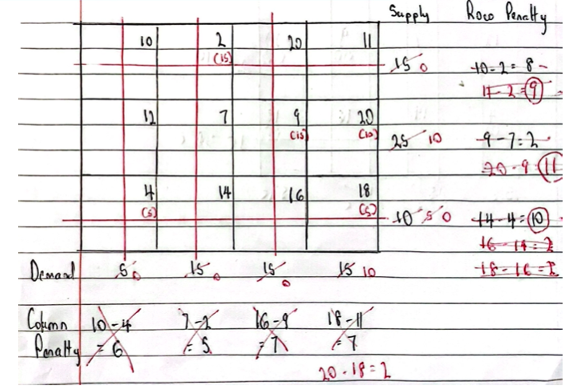 Supply Row Penalty
10 2 20 11
(15) 15 0 10-2=8-
11-2=9
12 7 9 20
(15) (10) 25 10 9-7=2
20-9 11
4 14 16 18
(5) (5) 10 5 0 14-4=10
16-14=2
18-16=2
Demand 5 0 15 0 15 0 15 10
Column 10-4 7-2 16-9 18-11
Penalty =6 =5 =7 =7
20-18=2